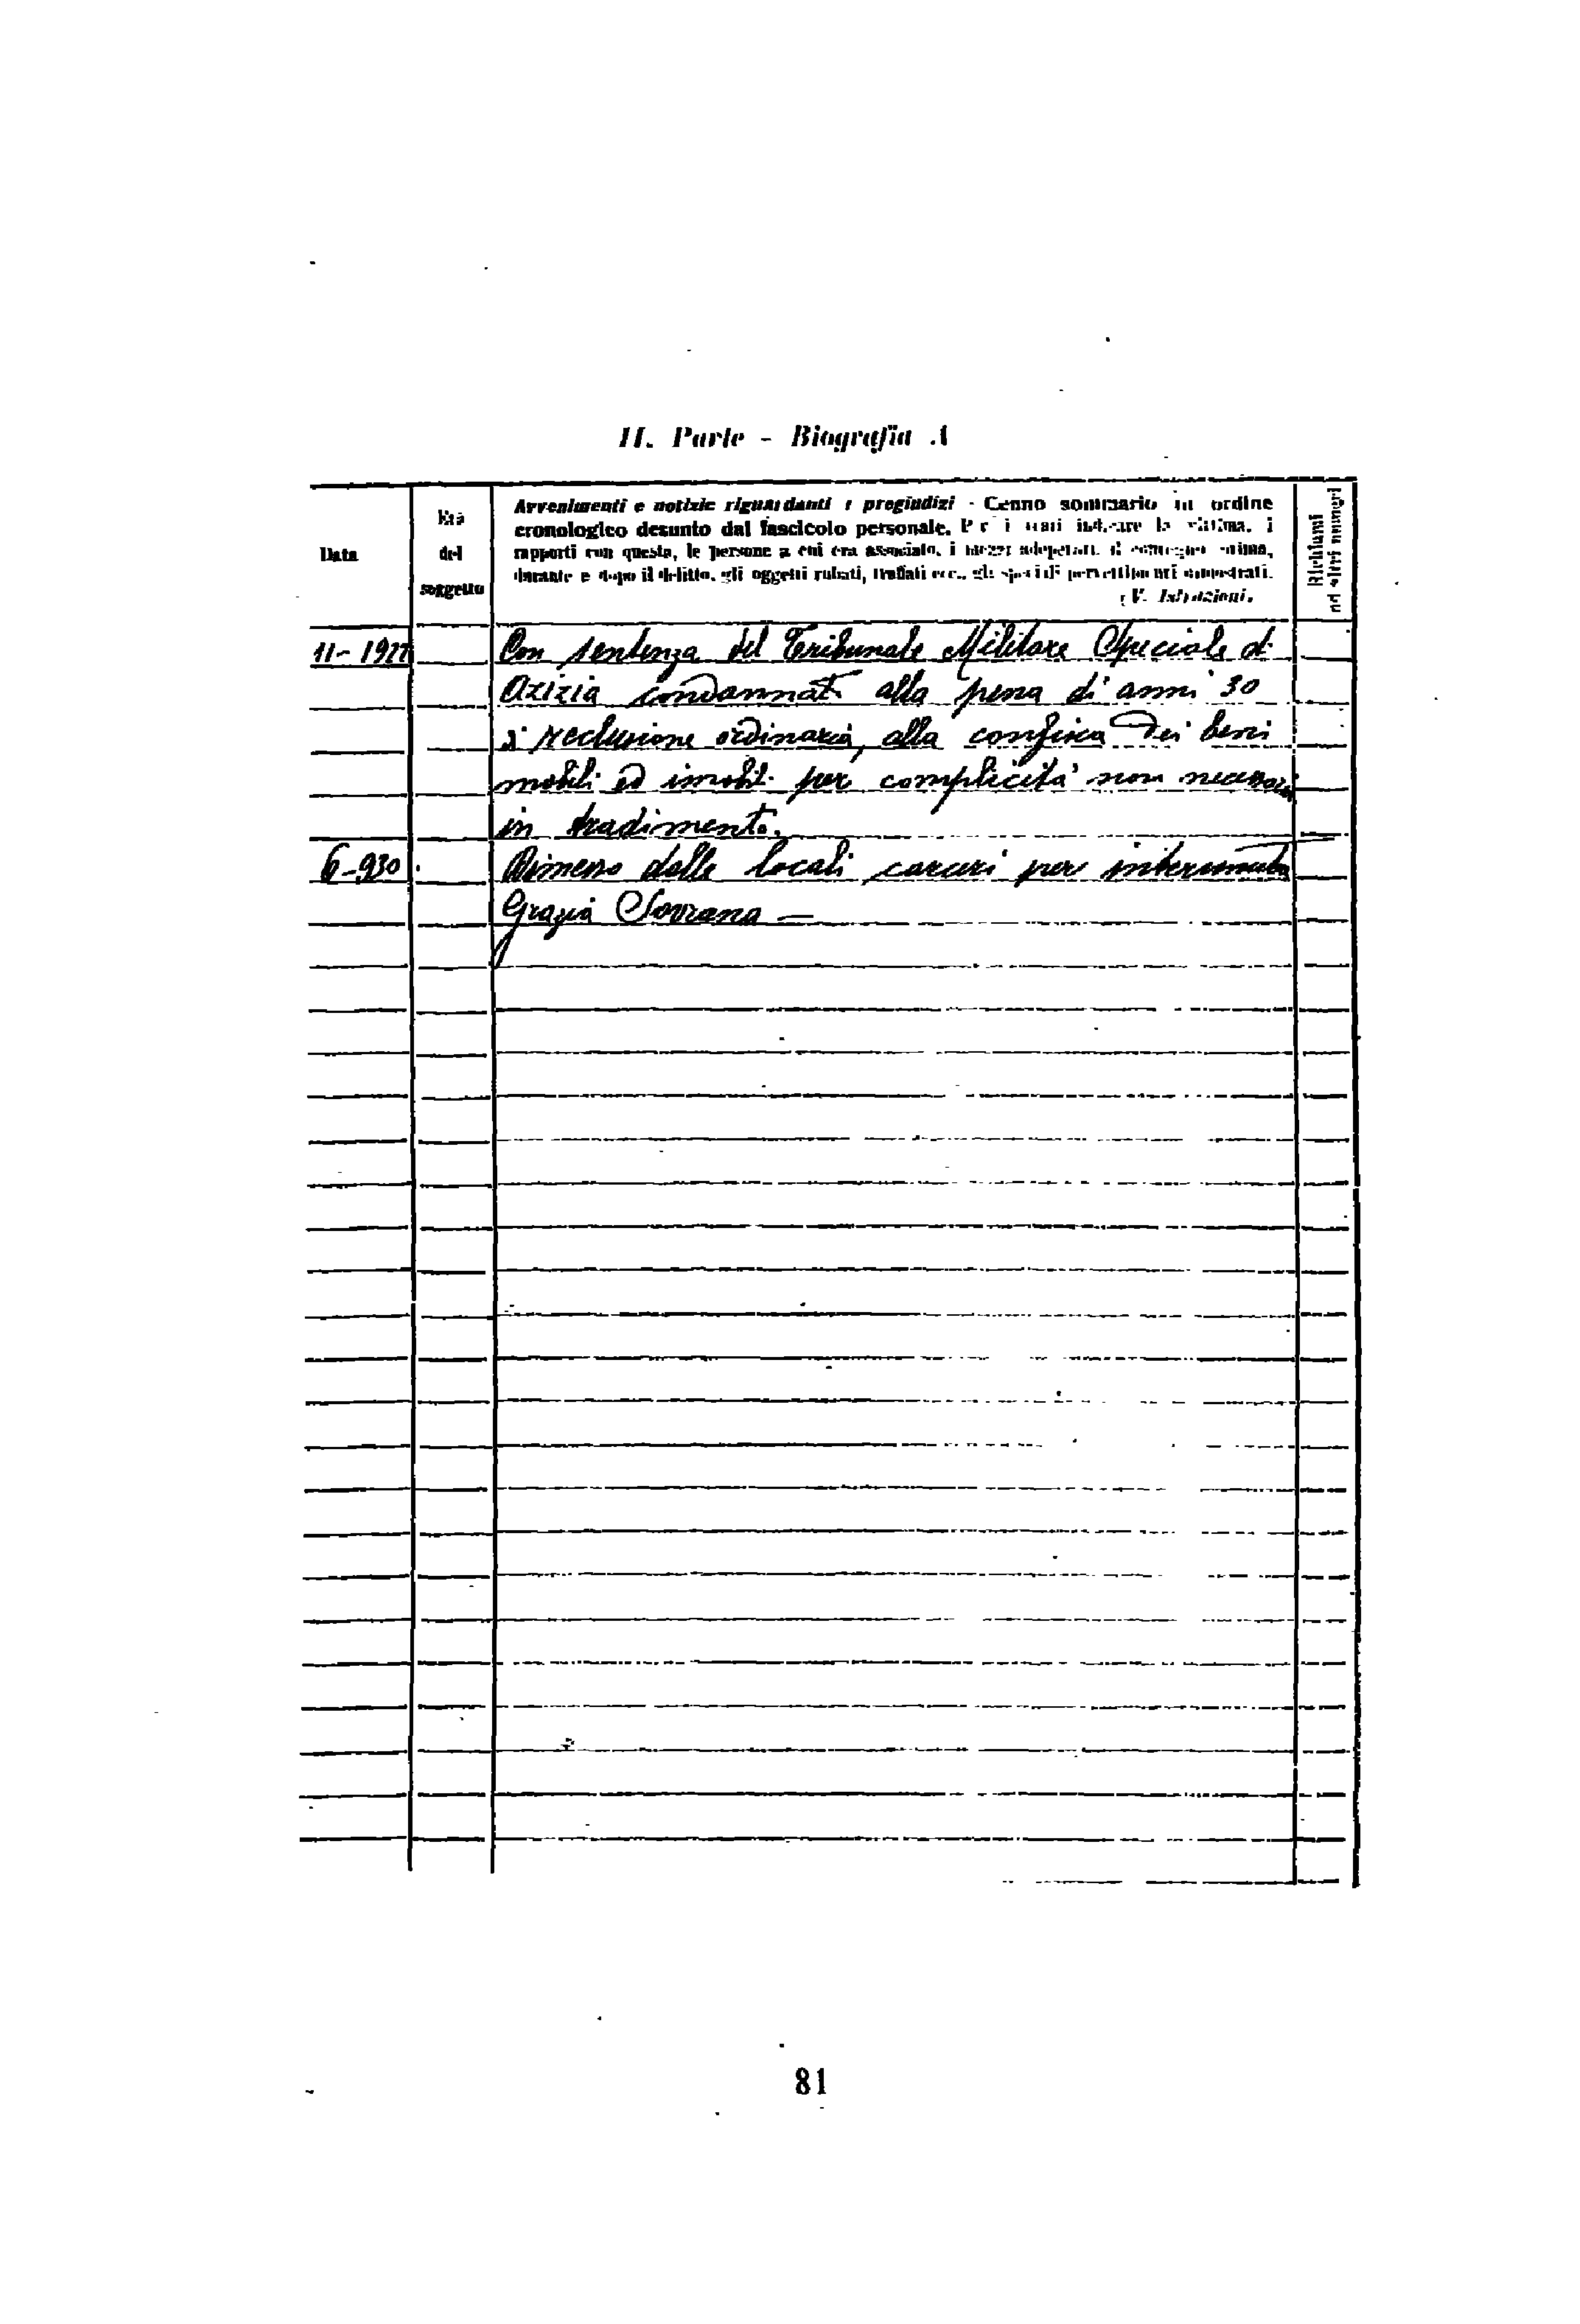 II. Parte - Biografia A
Data
Età
del
soggetto
Avvenimenti e notizie riguardanti i pregiudizi - Cenno sommario in ordine
cronologico desunto dal fascicolo personale. Per i reati indicare la vittima, i
rapporti con questa, le persone a cui era associato, i mezzi adoperati, il contegno prima,
durante e dopo il delitto, gli oggetti rubati, truffati ecc., gli speciali pervertimenti dimostrati.
(V. Istruzioni.
Richiami
ad altri numeri
11-1927
Con sentenza del Tribunale Militare Speciale di
Azizia condannato alla pena di anni 30
di reclusione ordinaria, alla confisca dei beni
mobili ed imobili per complicità non necessaria
in tradimento.
6-930
Dimesso dalle locali carceri per intervenuta
Grazia Sovrana —
81